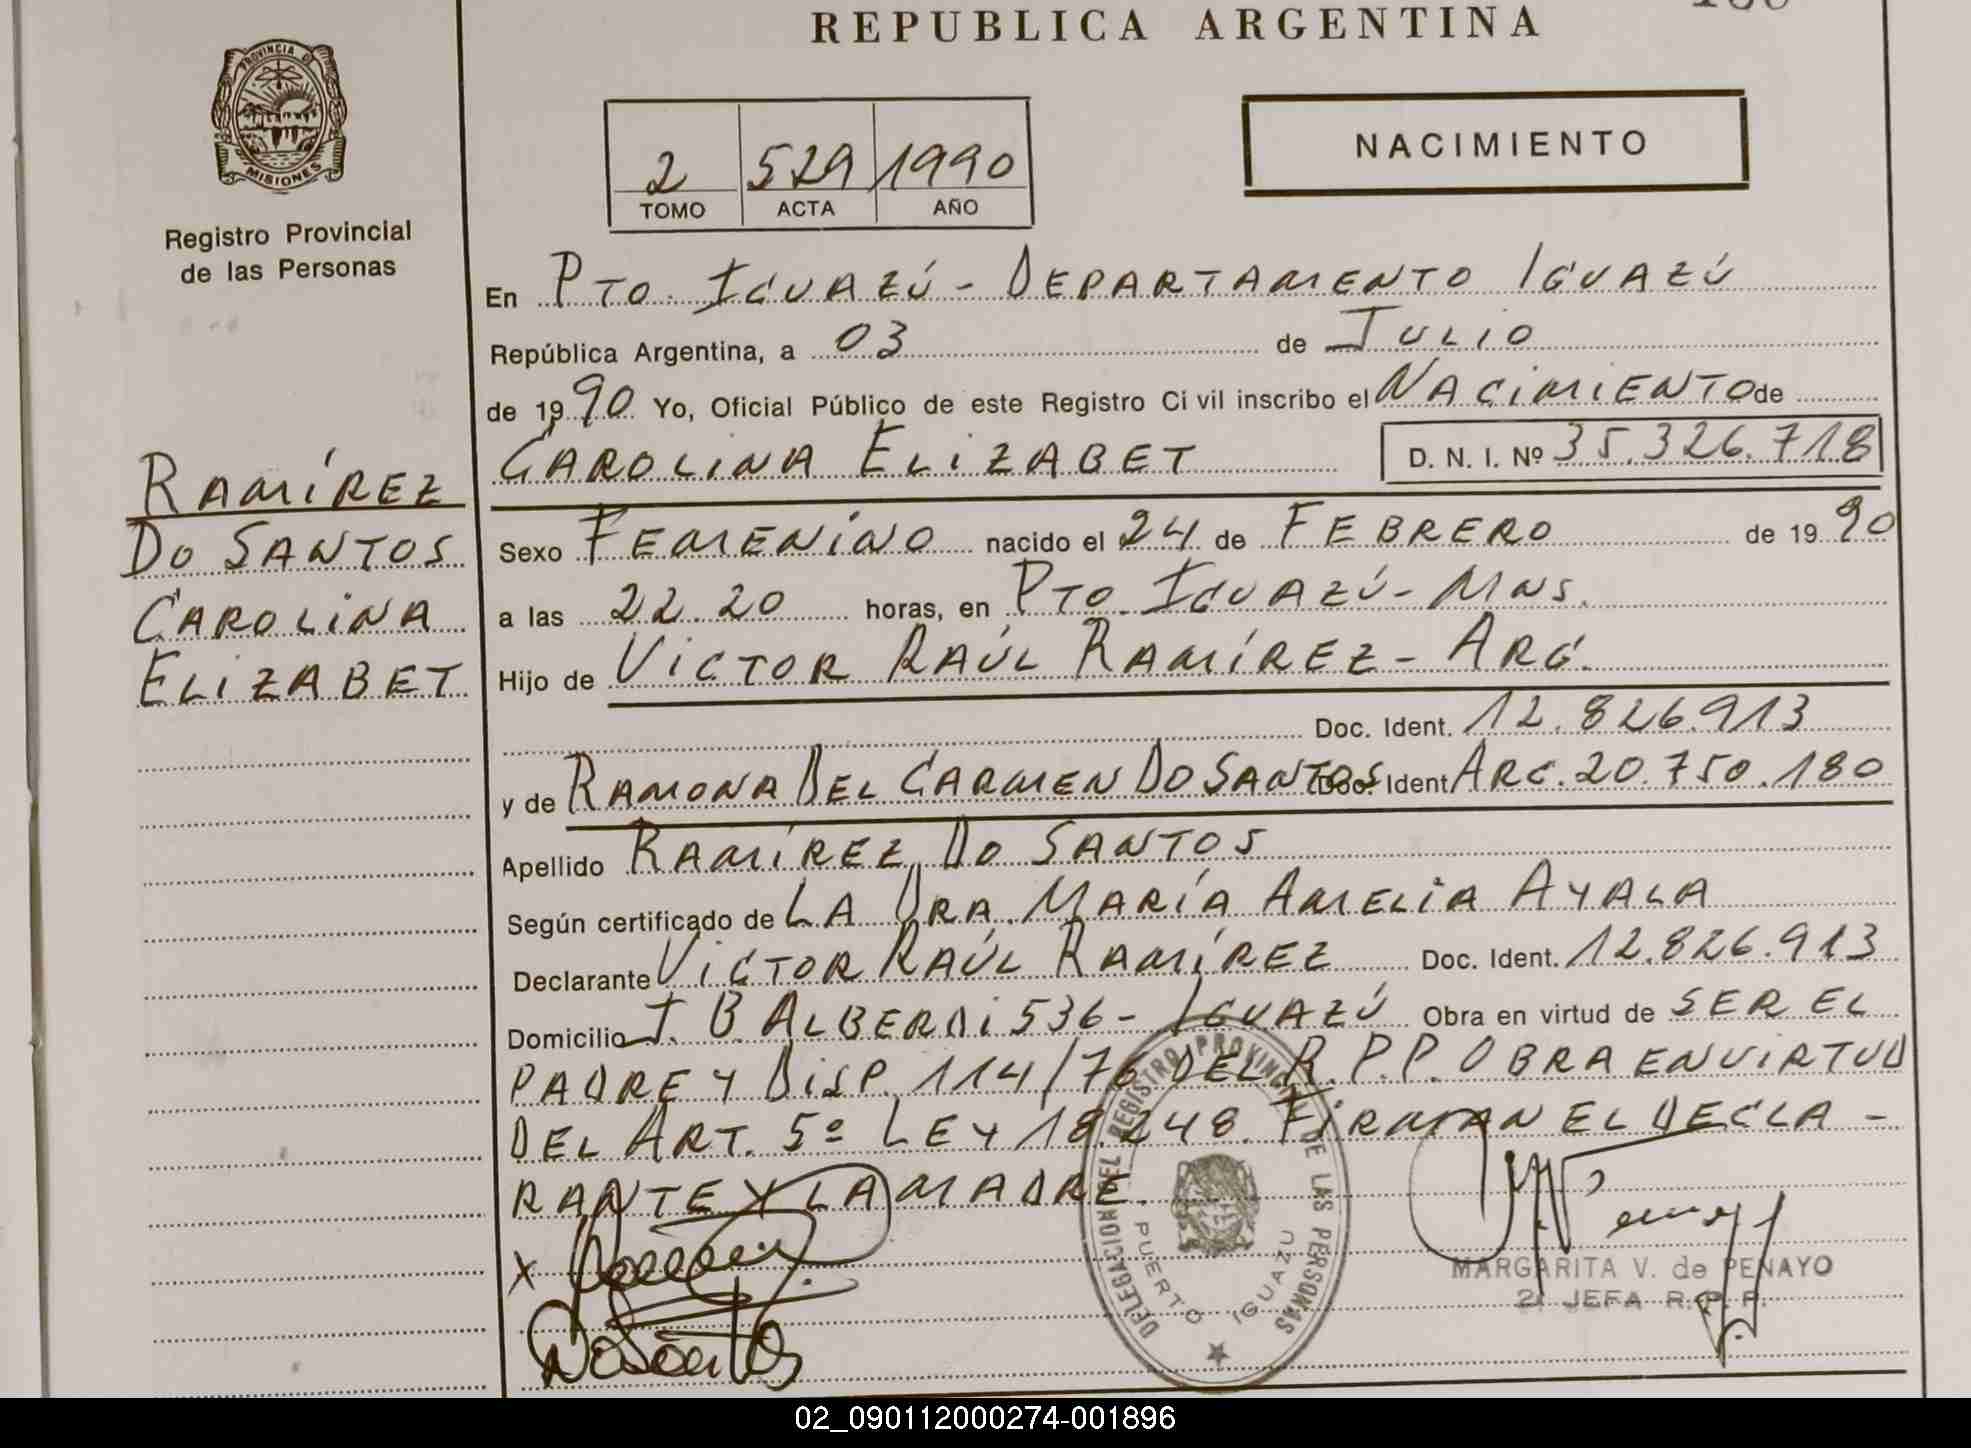 REPUBLICA ARGENTINA
PROVINCIA DE
MISIONES
Registro Provincial
de las Personas
2 529 1990
TOMO ACTA AÑO
NACIMIENTO
En PTO. IGUAZÚ - DEPARTAMENTO IGUAZÚ
República Argentina, a 03 de JULIO
de 1990 Yo, Oficial Público de este Registro Civil inscribo el NACIMIENTO de
CAROLINA ELIZABET D. N. I. Nº 35.326.718
RAMÍREZ
DO SANTOS
CAROLINA
ELIZABET
Sexo FEMENINO nacido el 24 de FEBRERO de 1990
a las 22.20 horas, en PTO. IGUAZÚ - MNS.
Hijo de VICTOR RAÚL RAMÍREZ - ARG.
Doc. Ident. 12.826.913
y de RAMONA DEL CARMEN DO SANTOS Doc. Ident ARG. 20.750.180
Apellido RAMÍREZ DO SANTOS
Según certificado de LA DRA. MARÍA AMELIA AYALA
Declarante VICTOR RAÚL RAMÍREZ Doc. Ident. 12.826.913
Domicilio J. B ALBERDI 536 - IGUAZÚ Obra en virtud de SER EL
PADRE Y DISP. 114/76 DEL R.P.P. OBRA EN VIRTUD
DEL ART. 5º LEY 18.248. FIRMAN EL DECLA-
RANTE Y LA MADRE.
X
DoSantos
DELEGACION DEL REGISTRO PROVINCIAL DE LAS PERSONAS
PUERTO IGUAZU
MARGARITA V. de PENAYO
2ª JEFA R. P. P.
02_090112000274-001896